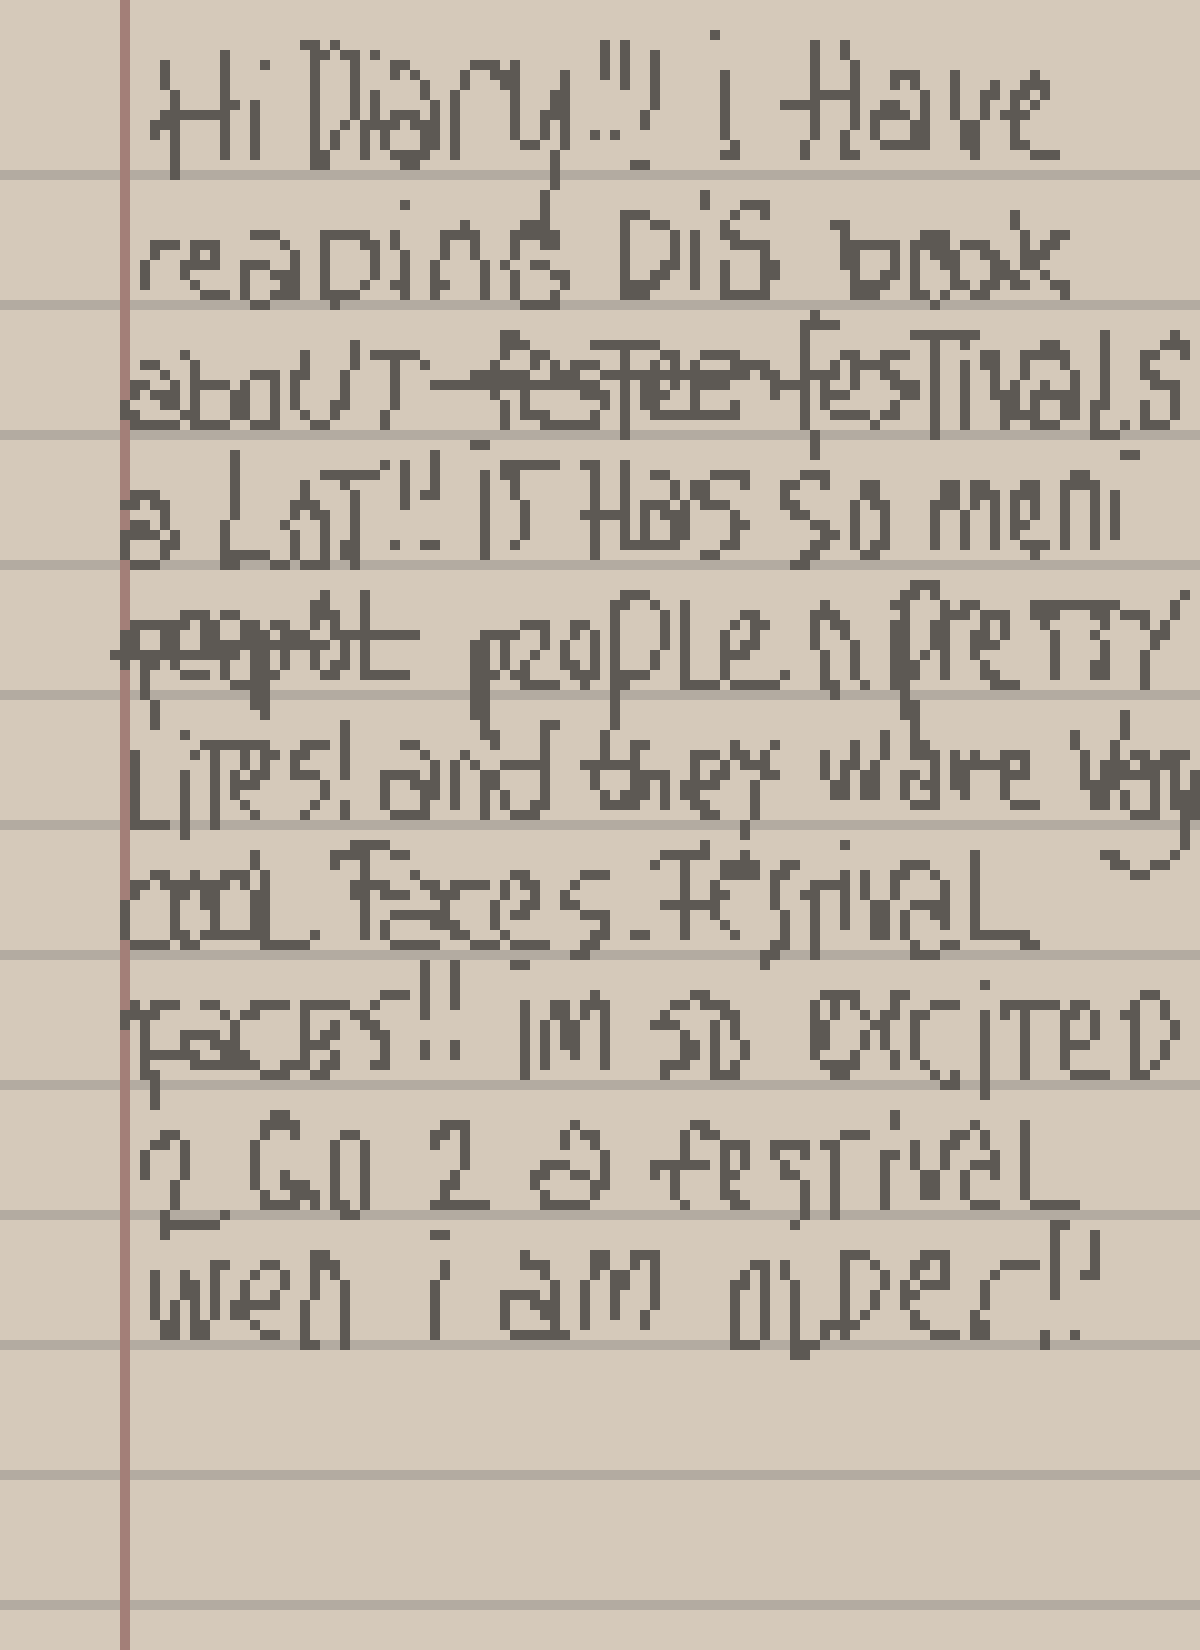 Hi Diary!!! i Have
reaDing DiS book
abouT fesTivaLs
a LoT!! iT Has so meni
people n preTTY
LiTes! and they ware
reaL faces. fesTivaL
faces!! im so exciTeD
2 Go 2 a fesTivaL
wen i am oLDer!!